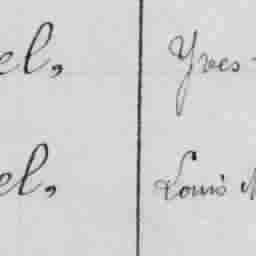 el, Yves-
el, Louis